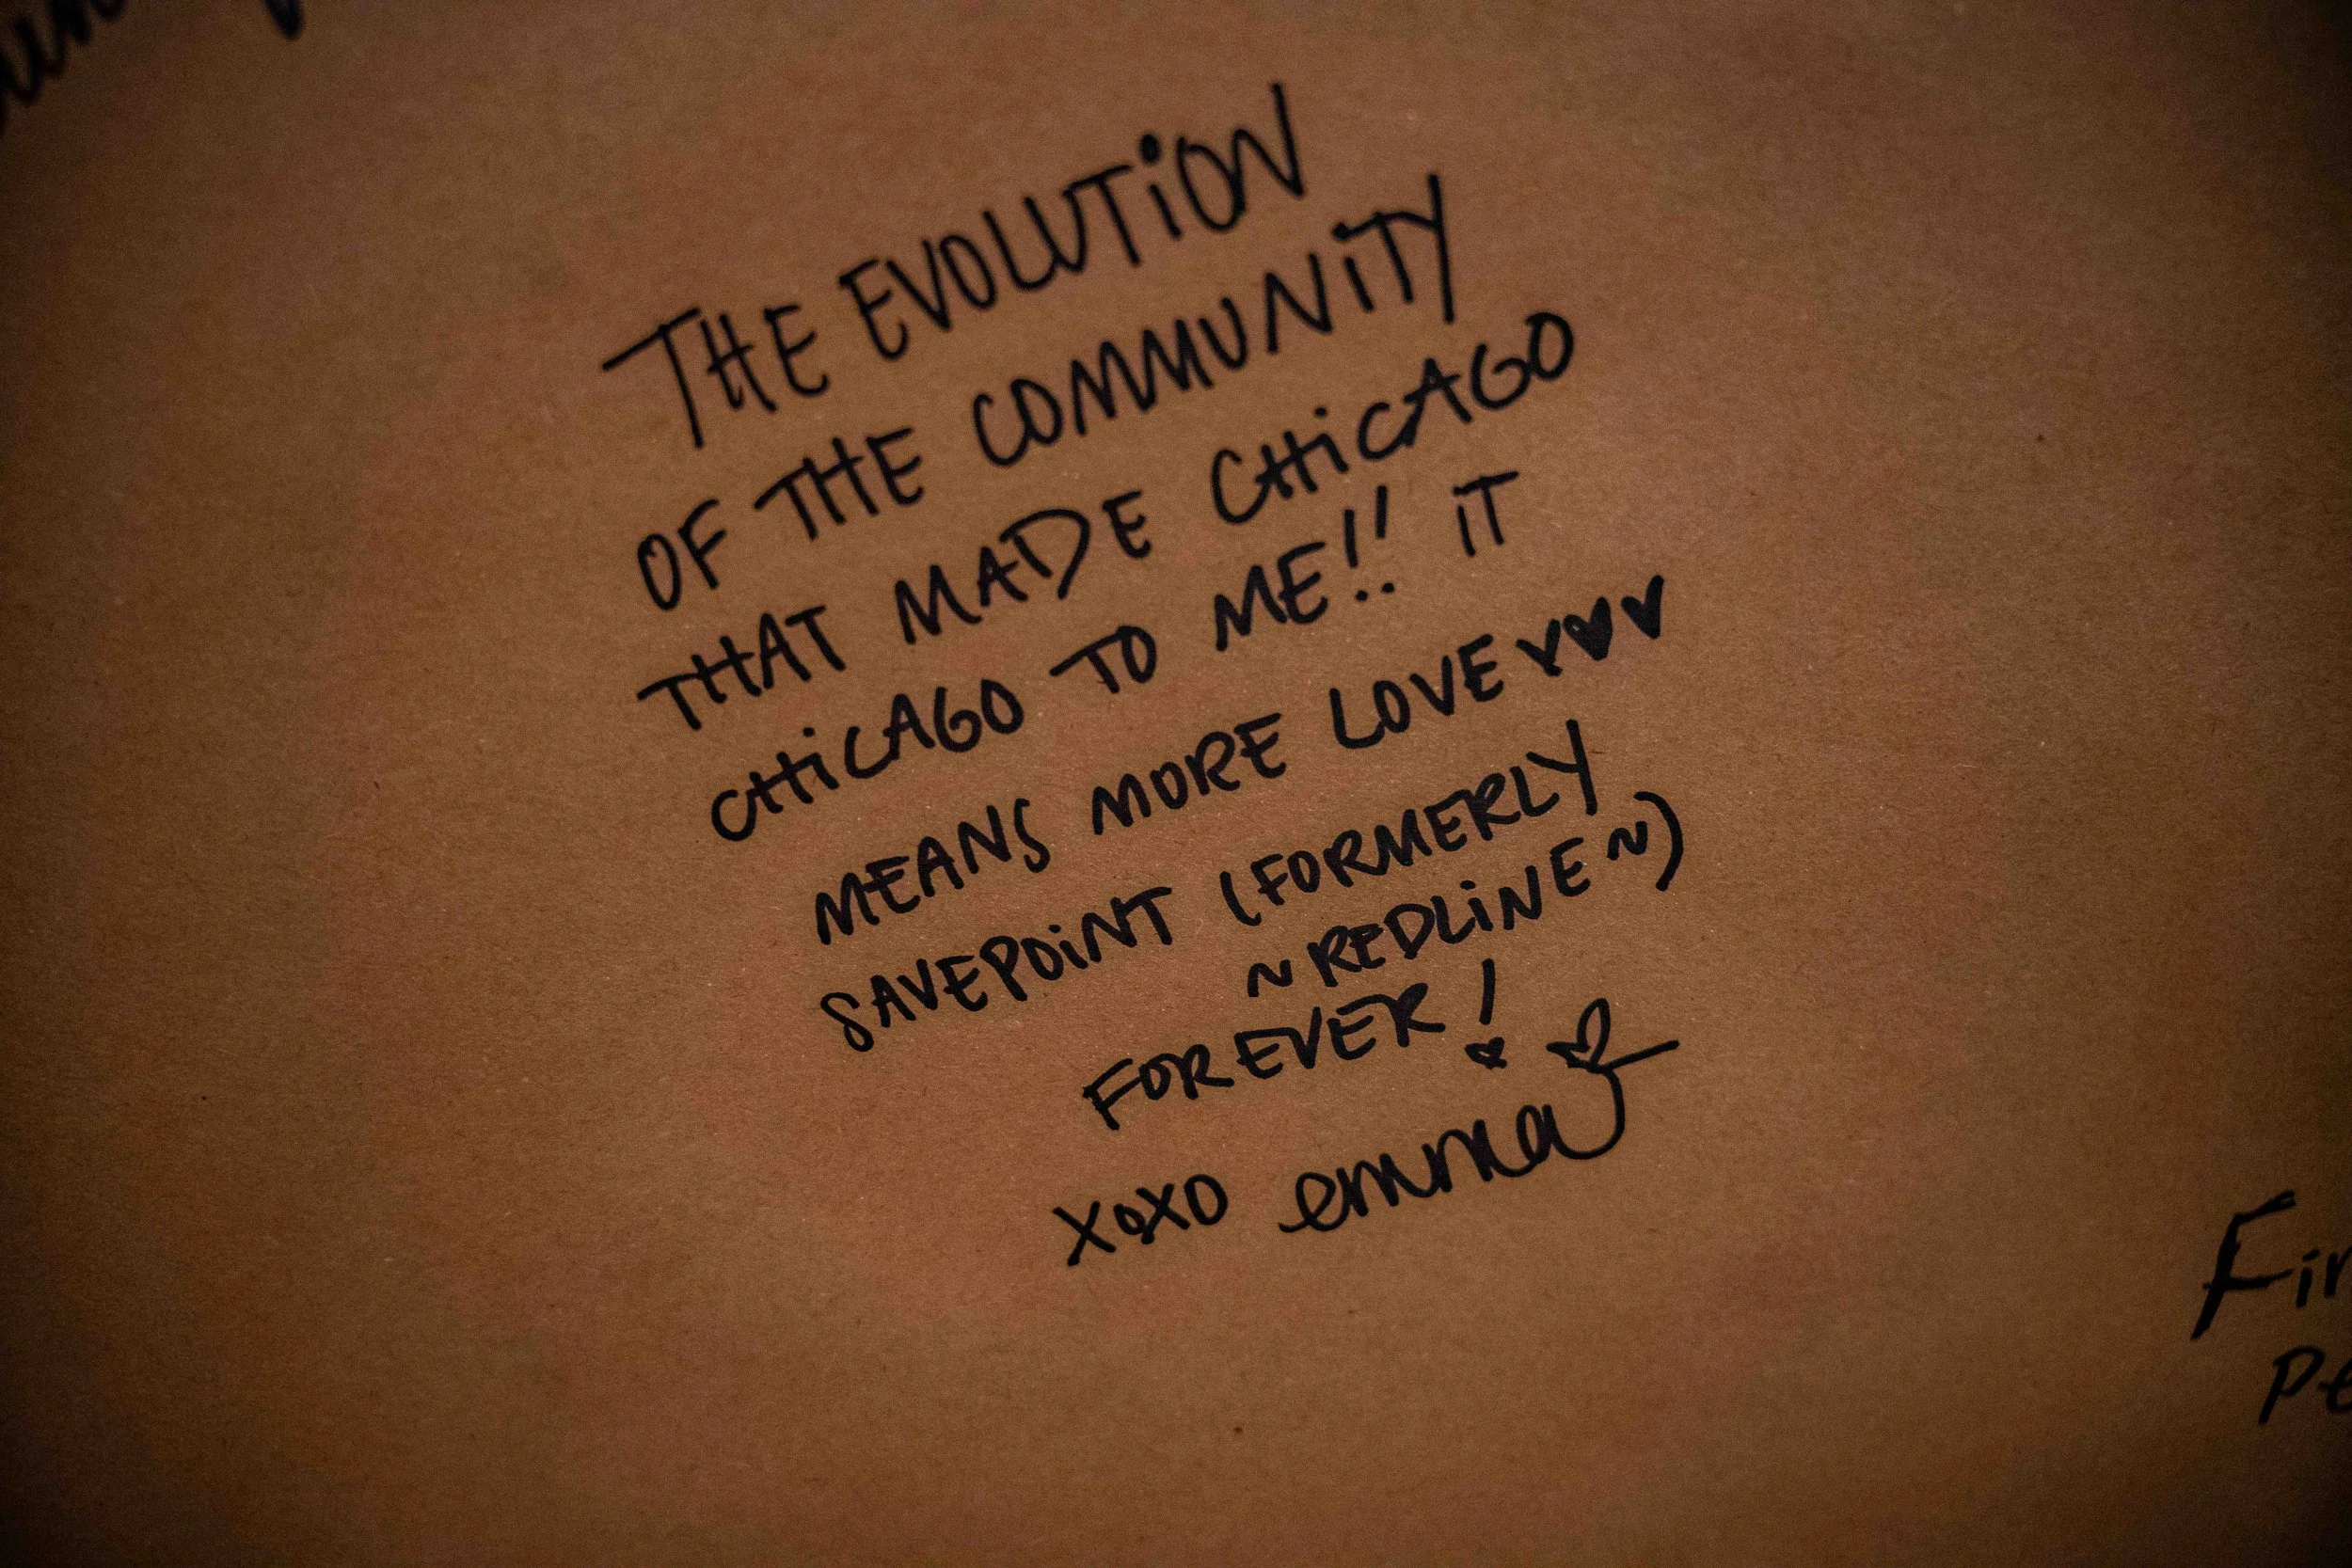 THE EVOLUTION
OF THE COMMUNITY
THAT MADE CHICAGO
CHICAGO TO ME!! IT
MEANS MORE LOVE ♥♥♥
SAVEPOINT (FORMERLY
~REDLINE~)
FOREVER!
XOXO emma